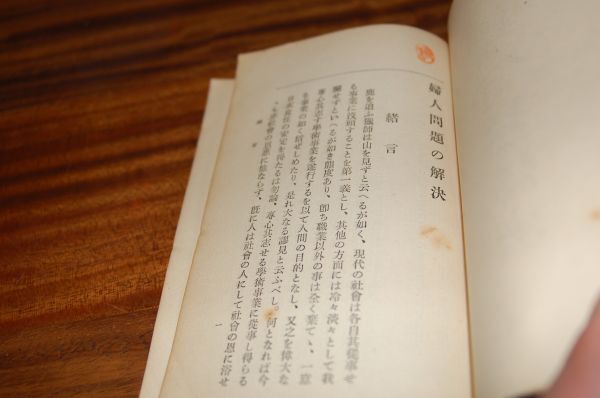 婦人問題の解決
緒言
鹿を追ふ獵師は山を見ずと云へるが如く、現代の社會は各自其從事せ
る事業に沒頭することを第一義とし、其他の方面には冷々淡々として我
關せずといへるが如き態度あり、卽ち職業以外の事は全く棄てゝ、一意
專心其志す學術事業を遂行するを以て人間の目的となし、又之を偉大な
る事業の如く信ぜしめたり、是れ大なる謬見と云ふべし。何となれば今
日衣食住の安定を得たるは勿論、專心其志せる學術事業に從事し得らる
社會の恩惠に他ならず、旣に人は社會の人にして社會の恩に浴せ
緒言
一